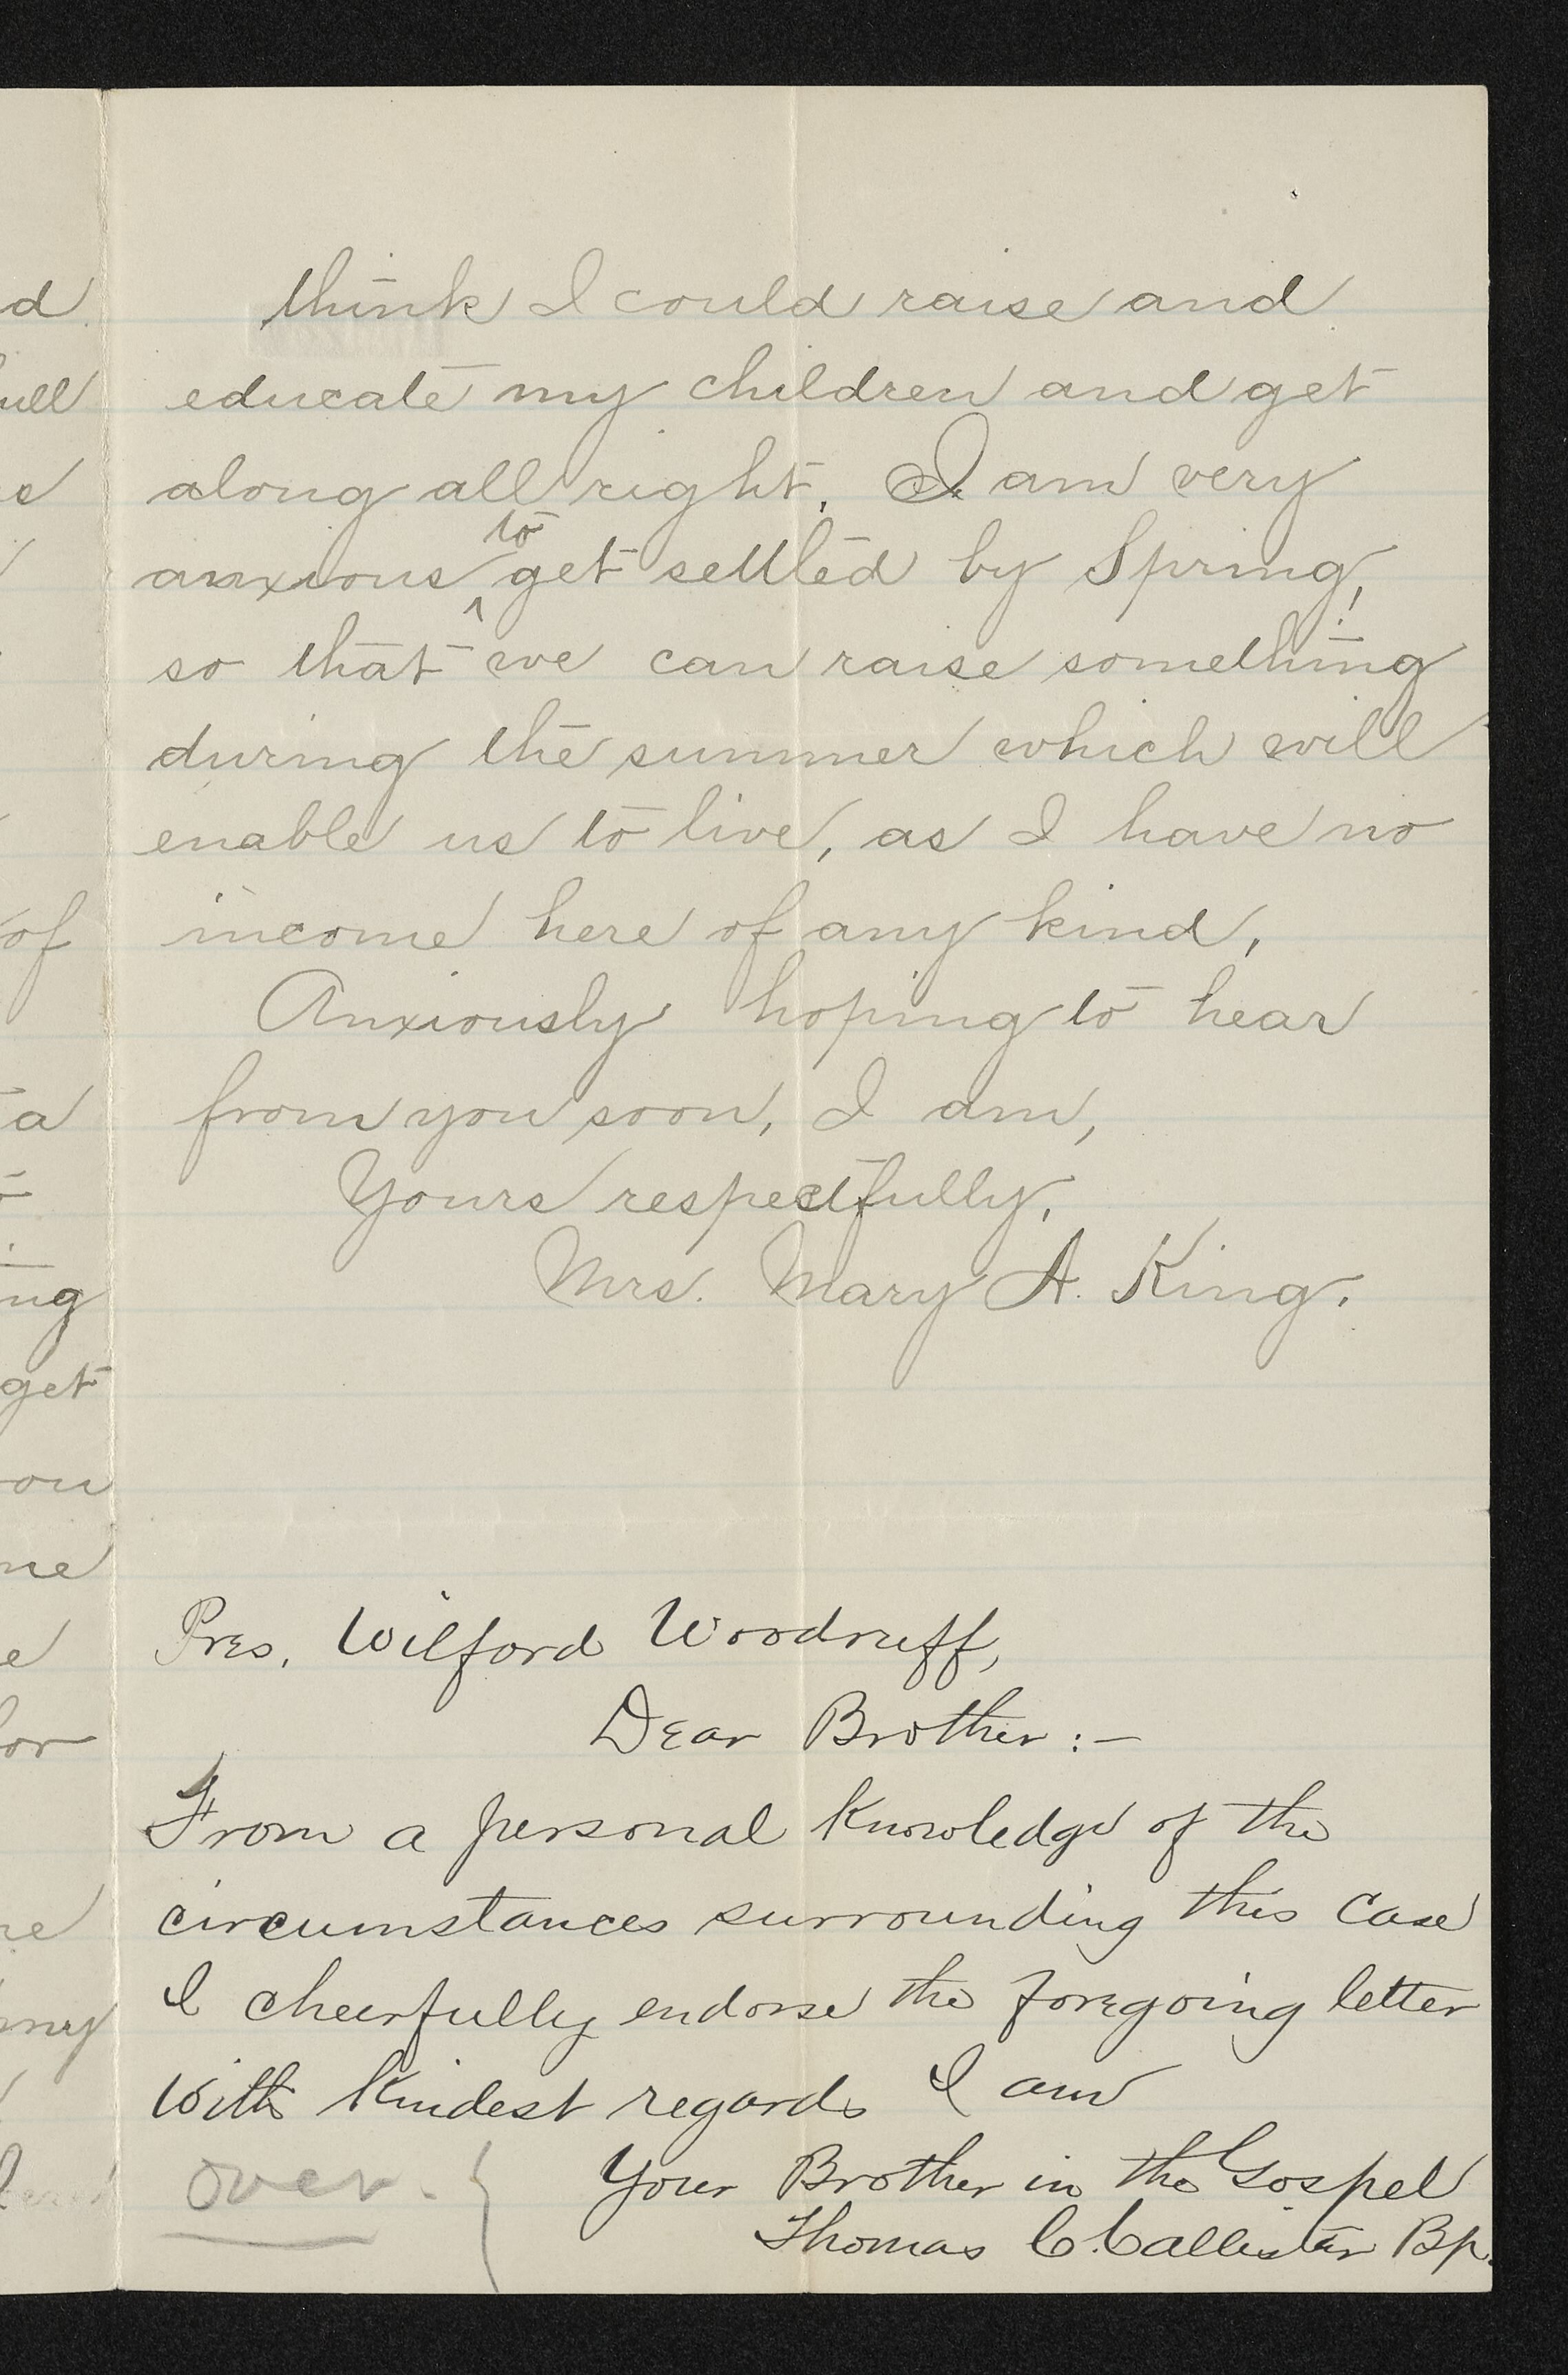 think I could raise and
educate my children and get
along all right. I am very
anxious ^to get settled by Spring,
so that we can raise something
during the summer which will
enable us to live, as I have no
income here of any kind,
Anxiously hoping to hear
from you soon, I am,
Yours respectfully,
Mrs. Mary A. King.
Pres. Wilford Woodruff,
Dear Brother :—
From a personal knowledge of the
circumstances surrounding this case
I cheerfully endorse the foregoing letter
With kindest regards I am
Your Brother in the Gospel
Thomas C. Callister Bp.
over.
d
ull
of
a
ng
get
ou
me
e
for
re
my